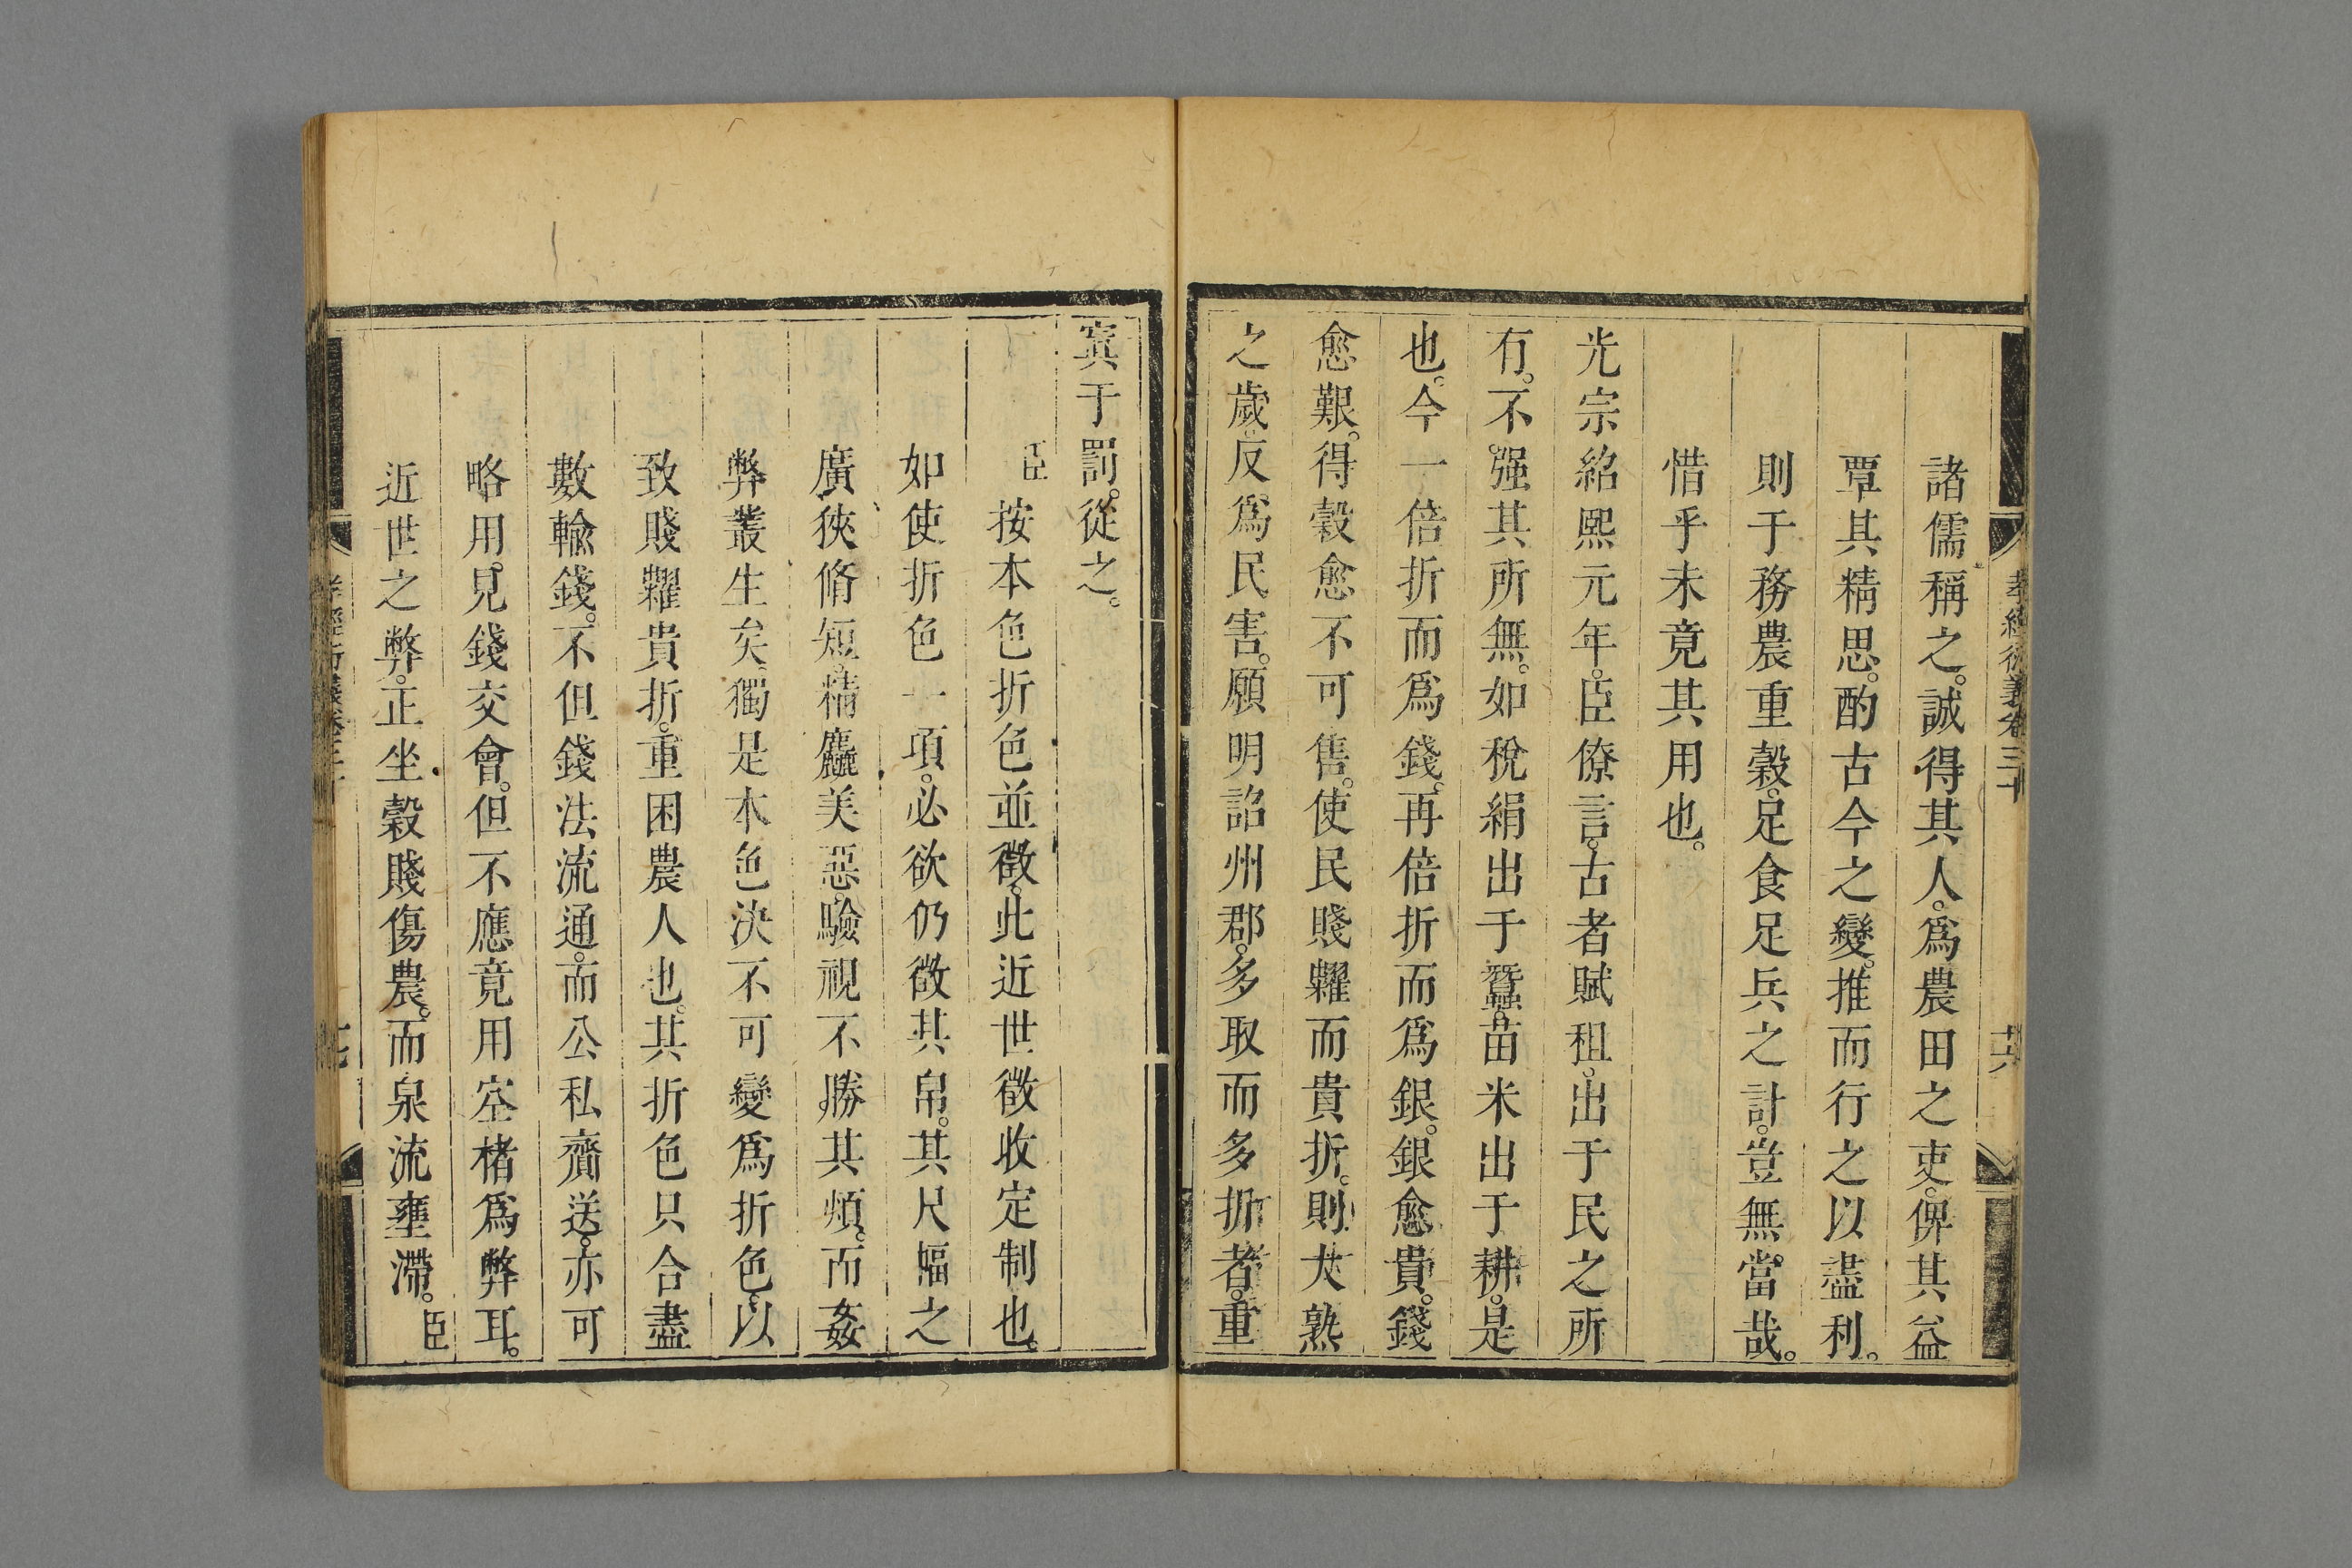 孝經衍義卷三十
十六
諸儒稱之。誠得其人。爲農田之吏。俾其益
覃其精思。酌古今之變。推而行之以盡利。
則于務農重穀。足食足兵之計。豈無當哉。
惜乎未竟其用也。
光宗紹熙元年。臣僚言。古者賦租。出于民之所
有。不强其所無。如稅絹出于蠶。苗米出于耕。是
也。今一倍折而爲錢。再倍折而爲銀。銀愈貴。錢
愈艱。得穀愈不可售。使民賤糶而貴折。則大熟
之歲。反爲民害。願明詔州郡。多取而多折者。重
寘于罰。從之。
臣按本色折色並徵。此近世徵收定制也。
如使折色一項。必欲仍徵其帛。其尺幅之
廣狹脩短。精麤美惡。驗視不勝其煩。而姦
弊叢生矣。獨是本色決不可變爲折色。以
致賤糶貴折。重困農人也。其折色只合盡
數輸錢。不但錢法流通。而公私齎送。亦可
略用。見錢交會。但不應竟用空楮爲弊耳。
近世之弊。正坐穀賤傷農。而泉流壅滯。臣
孝經衍義卷三十
十七